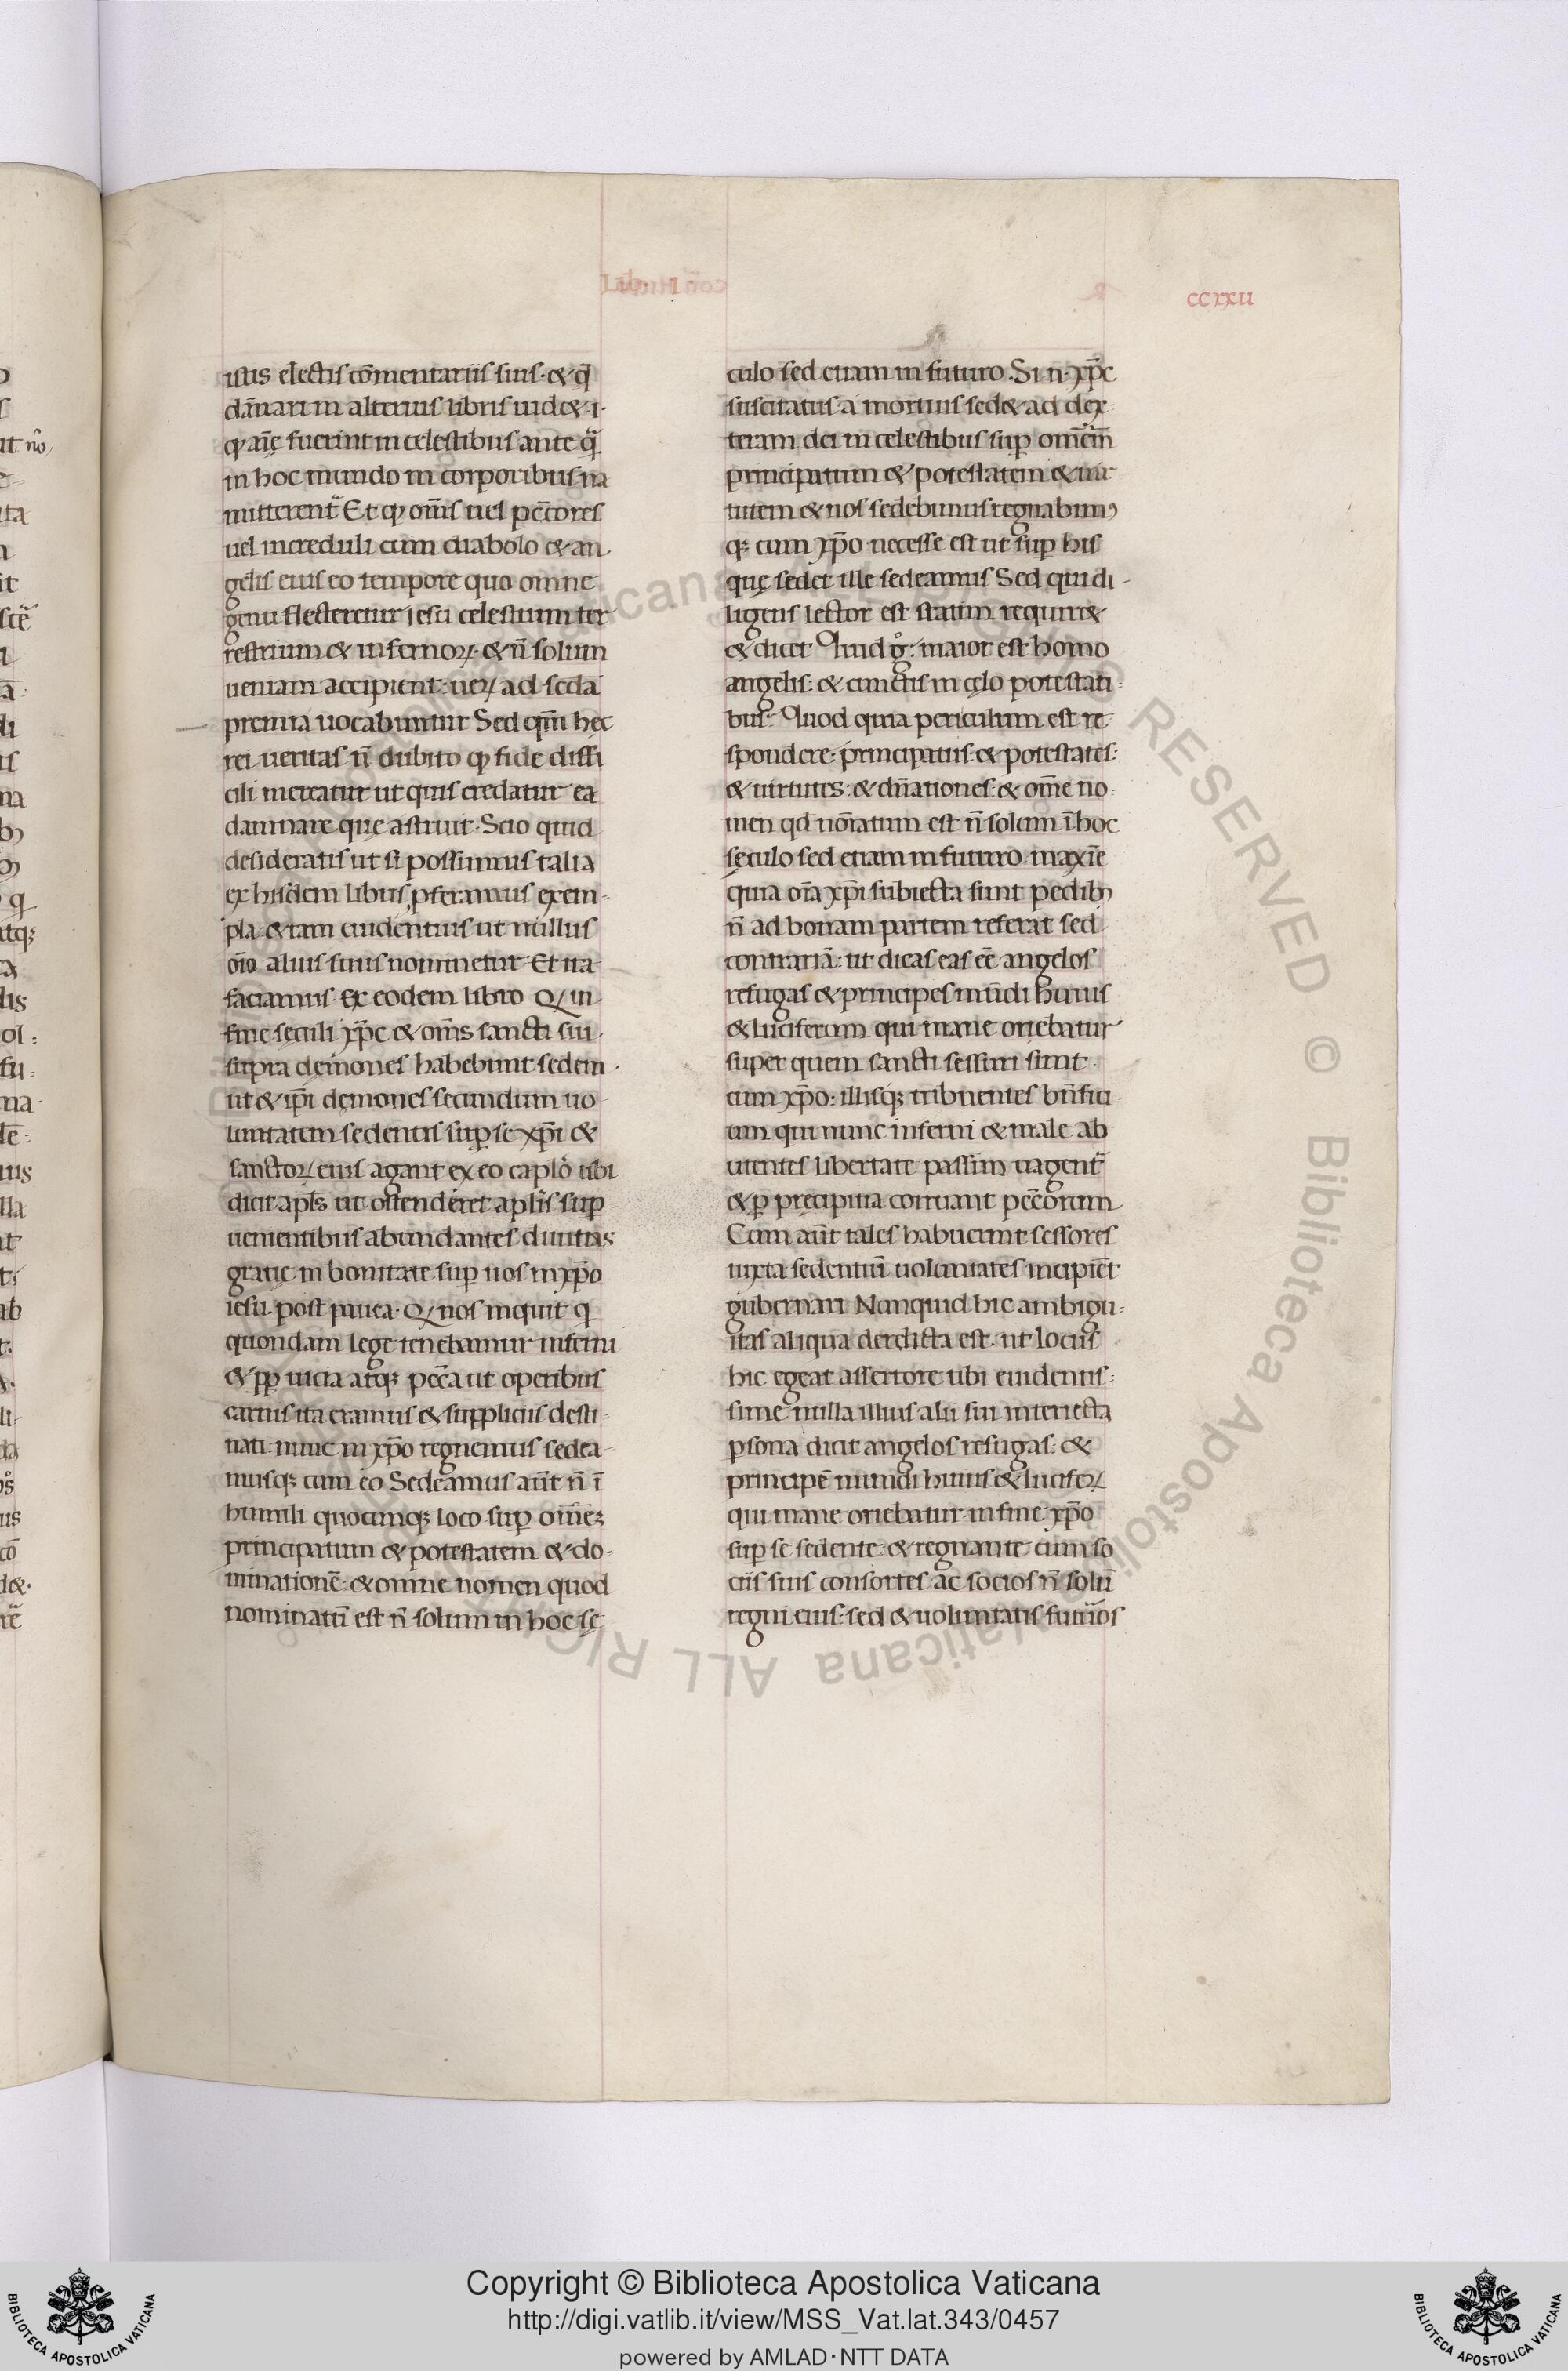 ccxxu
istis electis cōmentariis suis · & q̄
dānari in alterius libris uid& · i ·
ꝙ aīe fuerint in celestibus ante q̄
in hoc mundo in corporibus na
mitterent̃ Et ꝙ om̄s uel pec̄cores
uel increduli cum diabolo & an
gelis eius eo tempore quo omne
genu flecteretur iesu celestium ter
restrium & infernoꝝ · & ñ solum
ueniam accipient : ueꝝ ad sc̄da
premia uocabuntur Sed qm̄ hec
rei ueritas ñ dubito ꝙ fide diffi
cili mereatur ut quis credatur ea
damnare que astruit · Scio quid
desideratis ut si possimus talia
ex hisdem libris ꝓferamus exem-
pla · & tam euidentius ut nullus
oīo alius suus nominetur Et ita
faciamus · Ex eodem libro Q, in
fine sęculi xp̄c & om̄s sancti sui ·
supra demones habebunt sedem ·
ut & ip̄i demones secundum uo
luntatem sedentis suꝑ se xp̄i &
sanctoꝝ eius agant ex eo capl̄o ubi
dicit apl̄s ut ostenderet apl̄is suꝑ
uenientibus abundantes diuitias
gratie in bonitate suꝑ uos in xp̄o
iesu · post pauca · Q, nos inquit q̄
quondam lege tenebamur inferni
& ꝓꝑ uicia atqꝫ pec̄ca ut operibus
carnis ita eramus & suppliciis desti
nati · nunc in xp̄o regnemus sedea
musqꝫ cum eo Sedeamus aūt ñ ī
humili quocumqꝫ loco suꝑ om̄eꝫ
principatum & potestatem & do-
minationē · & omne nomen quod
nominatū est ñ solum in hoc sę
culo sed etiam in futuro . Si n̄ · xp̄c
suscitatus · a mortuis sed& ad dex
teram dei in celestibus suꝑ om̄em
principatum & potestatem & uir
tutem & nos sedebimus regnabimꝰ
qꝫ cum xp̄o · necesse est ut suꝑ his
quę sedet ille sedeamus Sed qui di-
ligens lector est statim requir&
& dicet Quid g̊ : maior est homo
angelis : & cunctis in cęlo potestati-
bus · Quod quia periculum est re-
spondere : principatus & potestates :
& uirtutes : & dn̄ationes : & om̄e no-
men qd nōīatum est ñ solum ī hoc
sęculo sed etiam in futuro · maxīe
quia oīa xp̄i subiecta sunt pedibꝰ
ñ ad bonam partem referat sed
contrariā : ut dicas eas ēē angelos
refugas & principes mūdi huius
& luciferum qui mane oriebatur
super quem sancti sessuri sunt
cum xp̄o : illisqꝫ tribuentes bn̄fici
um qui nunc inferni & male ab
utentes libertate passim uagent̃
& ꝑ precipitia corruant pec̄corum
Cum aūt tales habuerint sessores
iuxta sedentiū uoluntates incipiēt
gubernari Nunquid hic ambigu-
itas aliqua derelicta est · ut locus
hic egeat assertore ubi euidentis-
sime nulla illius alii sui interiecta
ꝑsona dicit angelos refugas : &
principē mundi huius & luciferꝝ
qui mane oriebatur · in fine · xp̄o
suꝑ se sedente · & regnante cum so
ciis suis consortes ac socios ñ solū
regni eius : sed & uoluntatis futuros
Copyright © Biblioteca Apostolica Vaticana
http://digi.vatlib.it/view/MSS_Vat.lat.343/0457
powered by AMLAD·NTT DATA